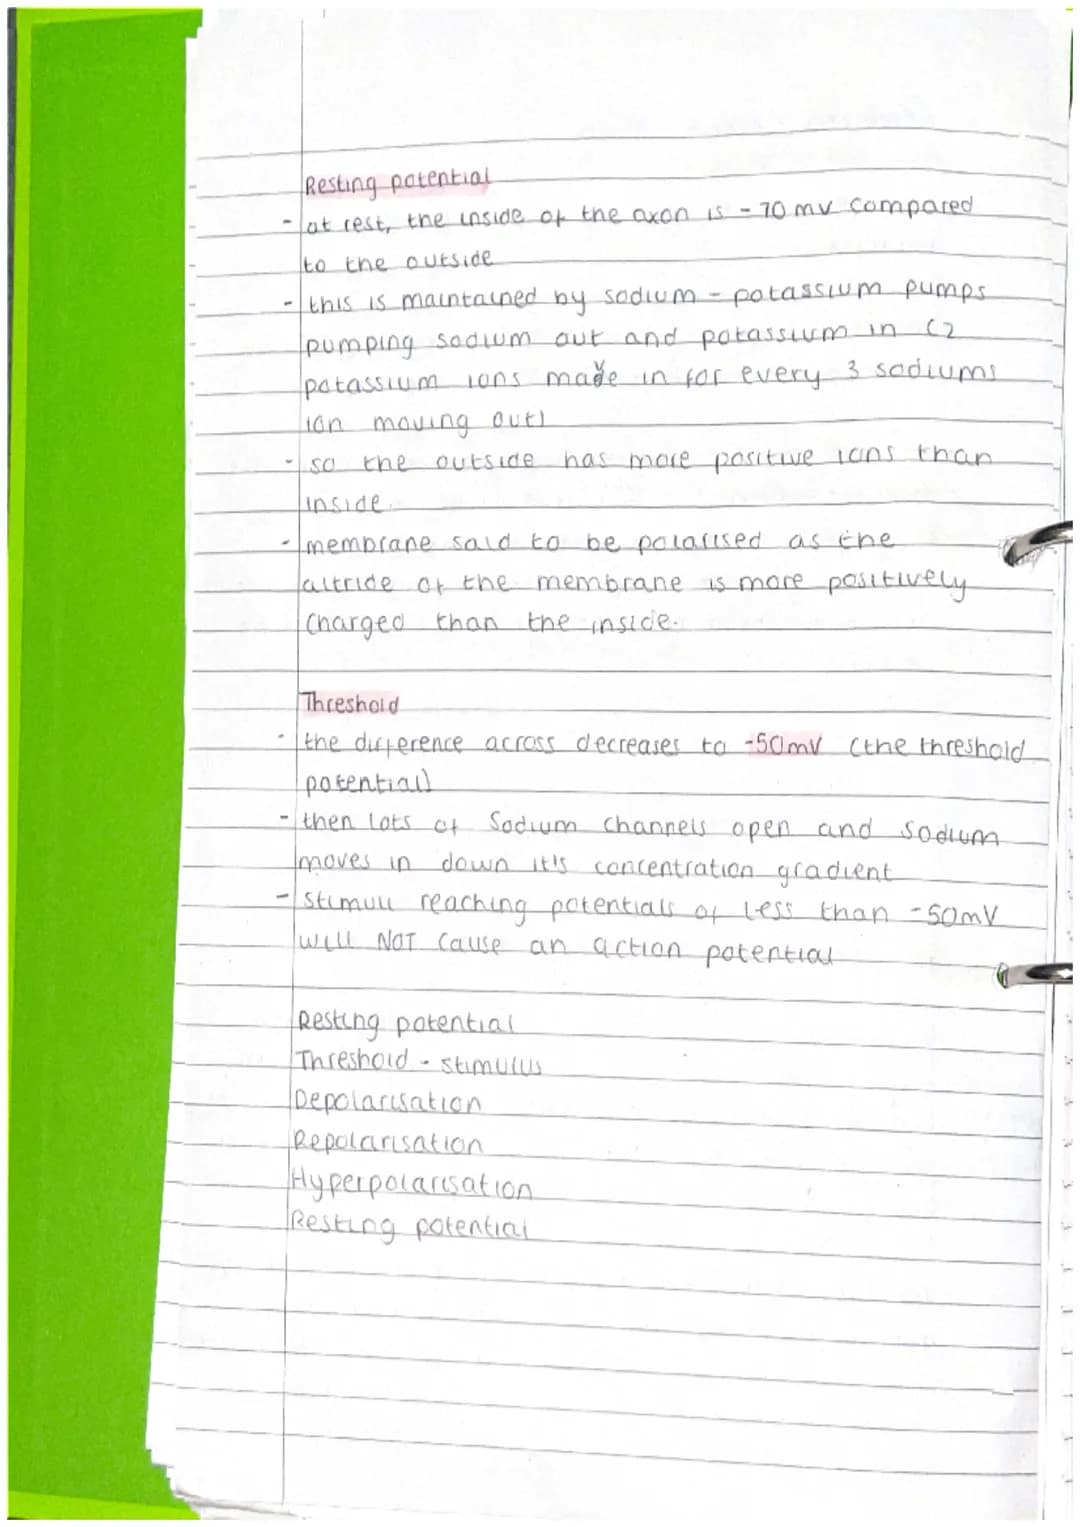 Resting potential
- at rest, the inside of the axon is -70 mv compared
to the outside
- this is maintained by sodium - potassium pumps
pumping sodium out and potassium in (2
potassium ions made in for every 3 sodiums
ion moving out)
- so the outside has more positive ions than
inside.
- membrane said to be polarised as the
altride of the membrane is more positively
charged than the inside.
Threshold
- the difference across decreases to -50mV (the threshold
potential)
- then lots of Sodium channels open and sodium
moves in down it's concentration gradient
- Stimuli reaching potentials of less than -50mV
will NOT cause an action potential
Resting potential
Threshold - stimulus
Depolarisation
Repolarisation
Hyperpolarisation
Resting potential